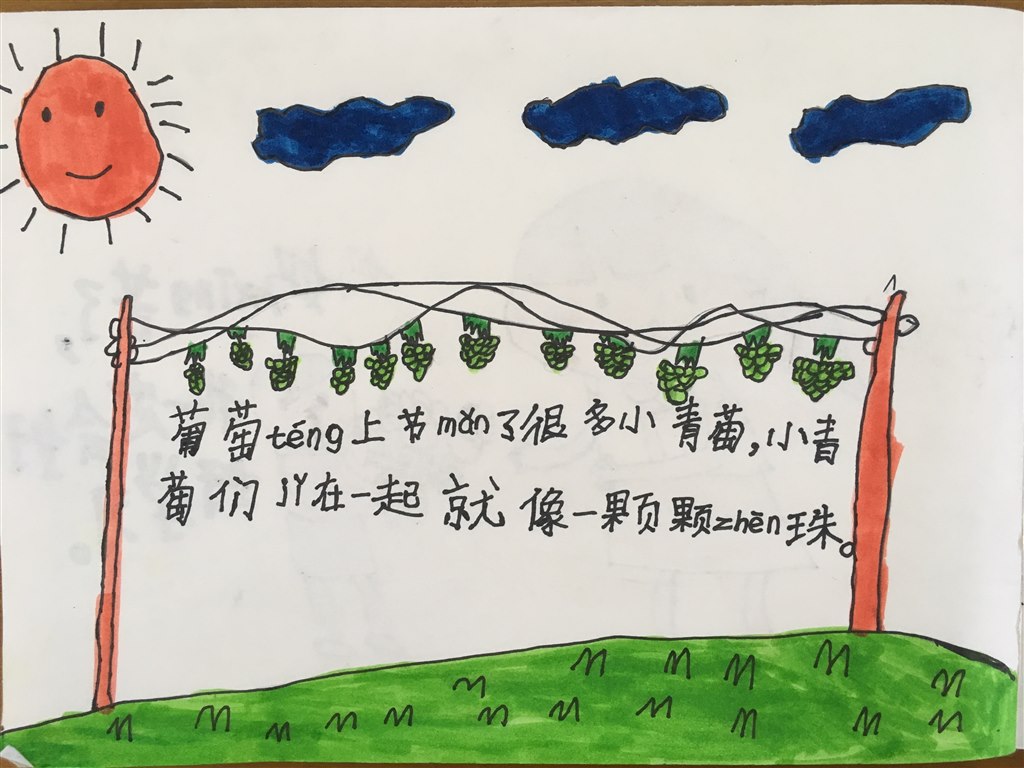 葡萄téng上节mǎn了很多小青萄,小青
萄们jǐ在一起就像一颗颗zhēn珠。